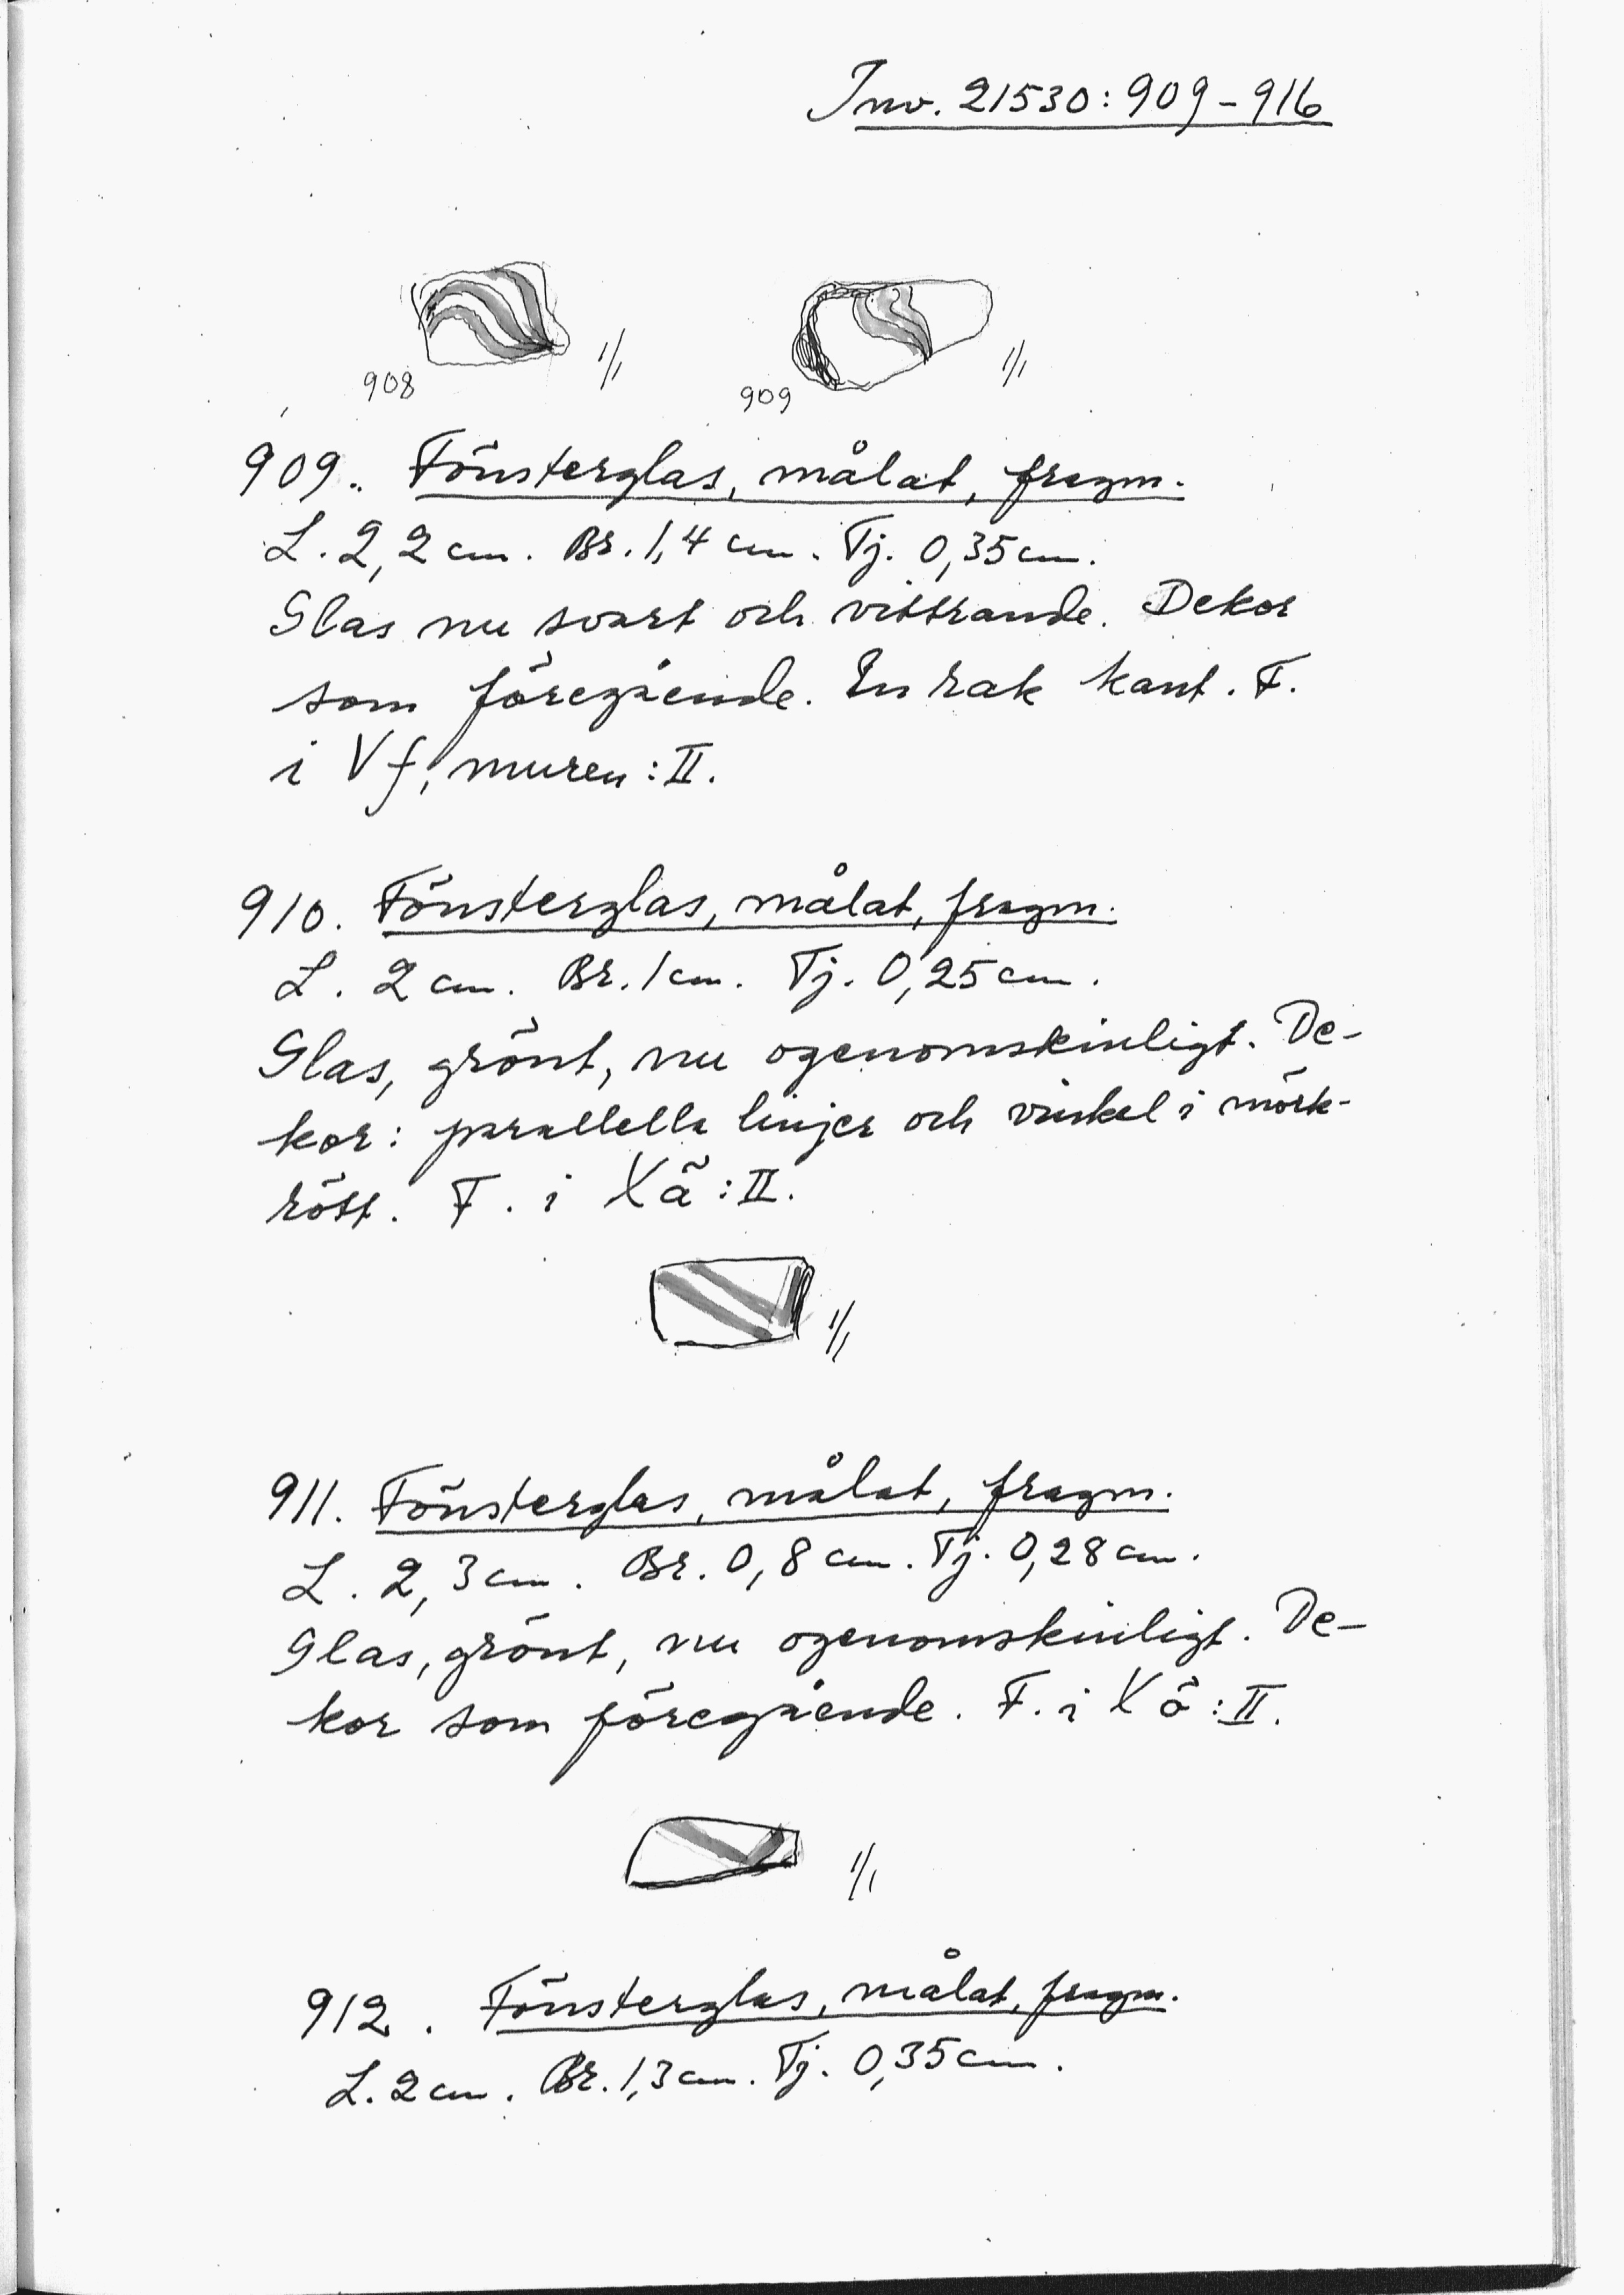 Inv. 21530:909-916
1/1 1/1
908 909
909. Fönsterglas, målat, fragm.
L. 2,2 cm. Br. 1,4 cm. Tj. 0,35 cm.
Glas nu svart och vittrande. Dekor
som föregående. En rak kant. F.
i Vf, muren:II.
910. Fönsterglas, målat, fragm.
L. 2 cm. Br. 1 cm. Tj. 0,25 cm.
Glas, grönt, nu ogenomskinligt. De-
kor: parallella linjer och vinkel i mörk-
rött. F. i Xä:II.
1/1
911. Fönsterglas, målat, fragm.
L. 2,3 cm. Br. 0,8 cm. Tj. 0,28 cm.
Glas, grönt, nu ogenomskinligt. De-
kor som föregående. F. i Xö:II.
1/1
912. Fönsterglas, målat, fragm.
L. 2 cm. Br. 1,3 cm. Tj. 0,35 cm.